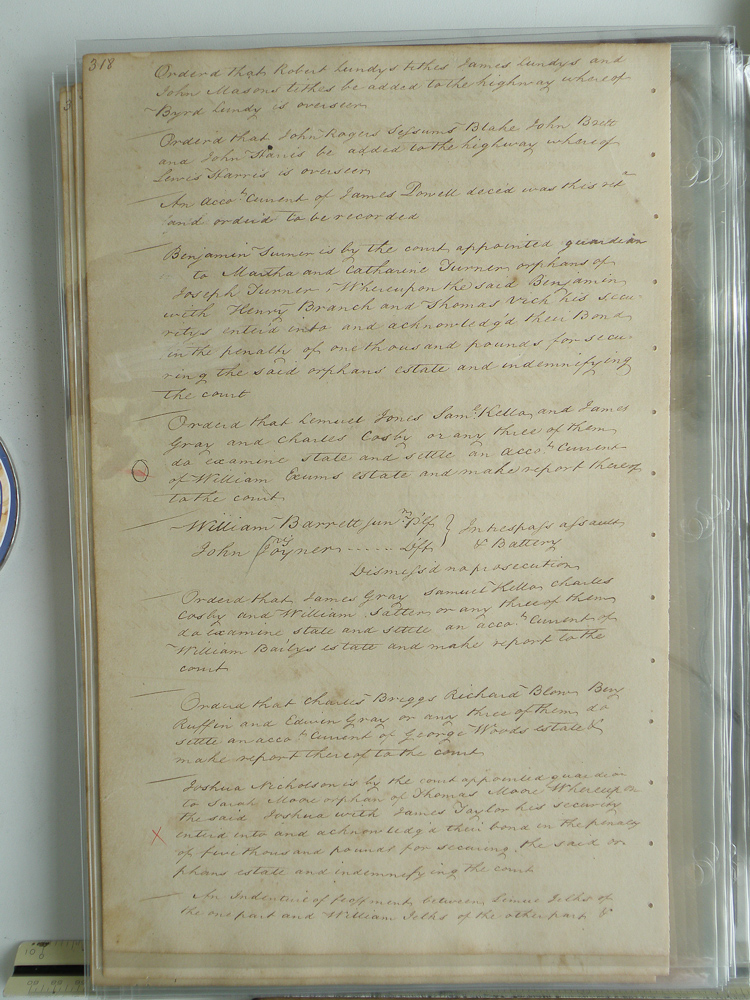 318
Orderd that Robert Lundys tithes James Lundys and
John Masons tithes be added to the highway whereof
Byrd Lundy is overseer
Orderd that John Rogers Sessums Blake John Brett
and John Harris be added to the highway whereof
Lewis Harris is overseer
An accot Current of James Powell decd was this retn
and orderd to be recorded
Benjamin Turner is by the court appointed guardian
to Martha and Catharine Turner orphans of
Joseph Turner, Whereupon the said Benjamin
with Henry Branch and Thomas Vick his secu-
ritys enterd into and acknowledg'd their Bond
in the penalty of one thousand pounds for secu-
ring the said orphans estate and indemnifying
the court
Orderd that Lemuel Jones Saml Kello and James
Gray and Charles Cosby or any three of them
do examine state and settle an accot Current
of William Exums estate and make report thereof
to the court
William Barrett junr Plf } In trespass assault
vs
John Joyner ...... Dft & Battery
Dismissd no prosecution
Orderd that James Gray Samuel Kello Charles
Cosby and William or any three of them
do examine state and settle an accot Current of
William Bailys estate and make report to the
court
Orderd that Charles Briggs Richard Blow Ben
Ruffin and Edwin Gray or any three of them do
settle an accot Current of George Woods estate &
make report thereof to the court
Joshua Nicholson is by the court appointed guardian
to Sarah Moore orphan of Thomas Moore Whereupon
the said Joshua with James Taylor his security
enterd into and acknowledg'd their bond in the penalty
of five thousand pounds for securing the said or
phans estate and indemnifying the court
An Indenture of feoffment between Jelks of
the one part and William Jelks of the other part &
10